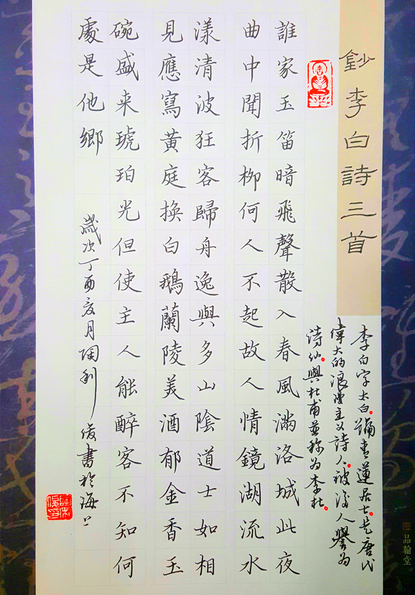 鈔李白詩三首
李白字太白.號青蓮居士.是唐代
偉大的浪漫主义詩人.被後人譽为
詩仙.與杜甫並称为李杜.
誰家玉笛暗飛聲散入春風滿洛城此夜
曲中聞折柳何人不起故人情鏡湖流水
漾清波狂客歸舟逸興多山陰道士如相
見應寫黃庭換白鵝蘭陵美酒郁金香玉
碗盛来琥珀光但使主人能醉客不知何
處是他鄉
歲次丁酉亥月陶利俊書於海上
品翰堂